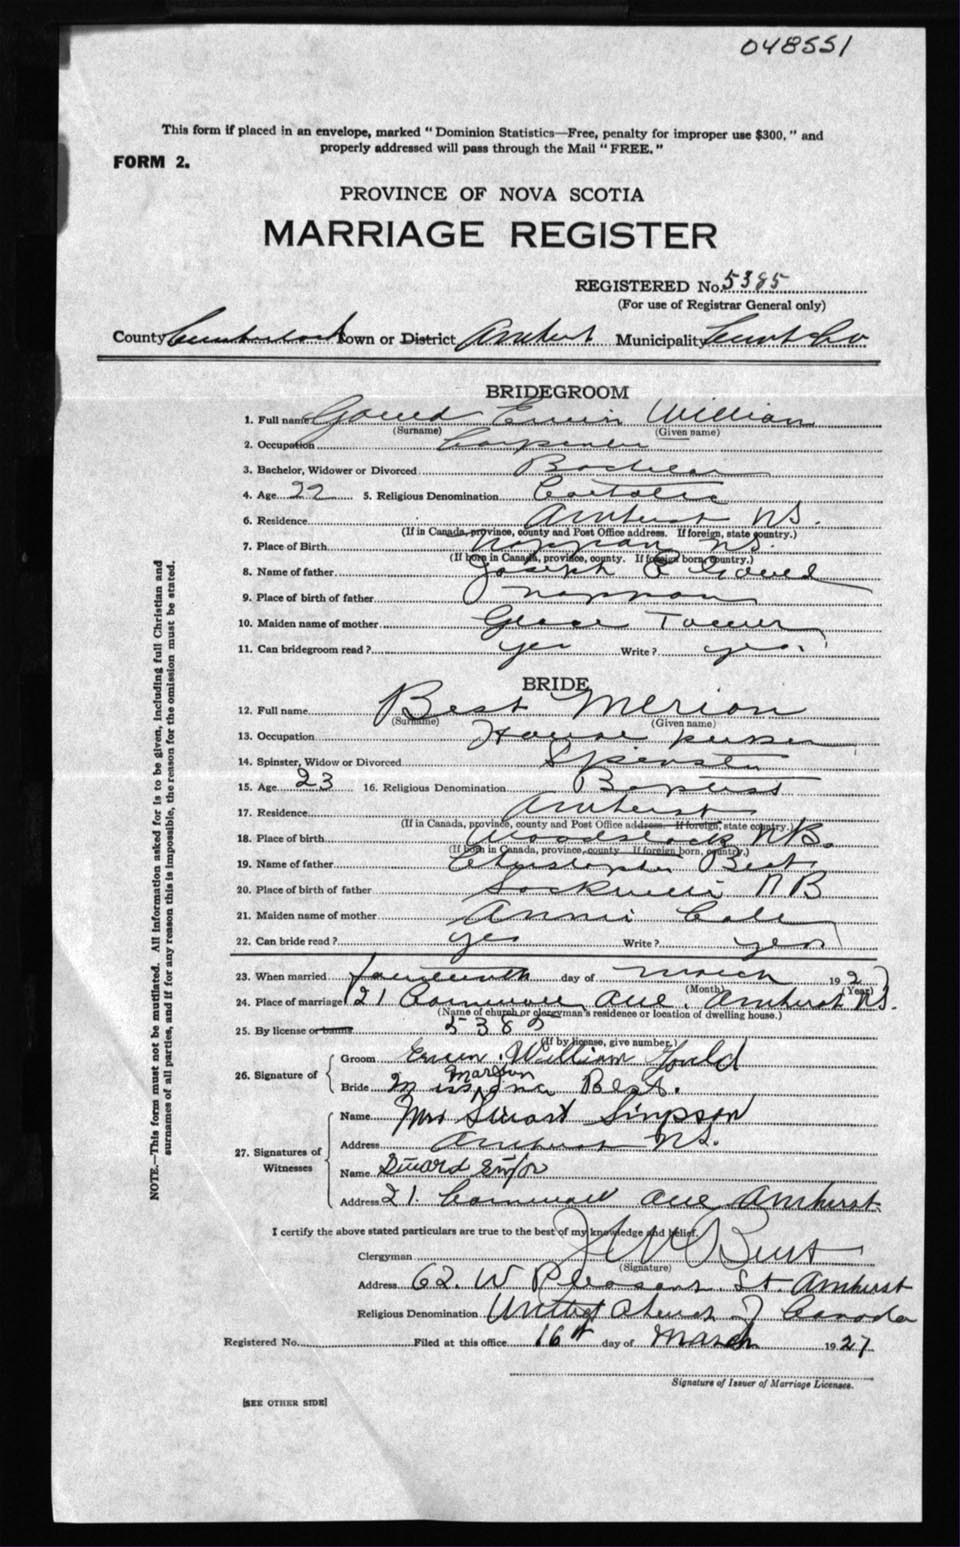 048551
This form if placed in an envelope, marked "Dominion Statistics—Free, penalty for improper use $300," and
properly addressed will pass through the Mail "FREE."
FORM 2.
PROVINCE OF NOVA SCOTIA
MARRIAGE REGISTER
REGISTERED No. 5385
(For use of Registrar General only)
County Cumberland Town or District Amherst Municipality Cumb Co
BRIDEGROOM
1. Full name Gould Erwin William
(Surname) (Given name)
2. Occupation Carpenter
3. Bachelor, Widower or Divorced Bachelor
4. Age 22 5. Religious Denomination Catholic
6. Residence Amherst NS.
(If in Canada, province, county and Post Office address. If foreign, state country.)
7. Place of Birth Nappan NS.
(If born in Canada, province, county. If foreign born, country.)
8. Name of father Joseph Gould
9. Place of birth of father Nappan
10. Maiden name of mother Grace Tower
11. Can bridegroom read? yes Write? yes
BRIDE
12. Full name Best Merion
(Surname) (Given name)
13. Occupation House keeper
14. Spinster, Widow or Divorced Spinster
15. Age 23 16. Religious Denomination Baptist
17. Residence Amherst
(If in Canada, province, county and Post Office address. If foreign, state country.)
18. Place of birth Woodstock NB.
(If born in Canada, province, county. If foreign born, country.)
19. Name of father Christopher Best
20. Place of birth of father Sackville NB
21. Maiden name of mother Annie Cole
22. Can bride read? yes Write? yes
23. When married day of March 1927
(Month) (Year)
24. Place of marriage 21 Cornwall Ave. Amherst NS.
(Name of church or clergyman's residence or location of dwelling house.)
25. By license or banns 5385
(If by license, give number.)
26. Signature of Groom Erwin William Gould
Bride Miss Marion Best.
27. Signatures of Witnesses
Name Mrs Stuart Simpson
Address Amherst NS.
Name
Address 21. Cornwall Ave Amherst
I certify the above stated particulars are true to the best of my knowledge and belief.
Clergyman
(Signature)
Address 62. W Pleasant St. Amherst
Religious Denomination United Church of Canada
Registered No. Filed at this office 16th day of March 1927
Signature of Issuer of Marriage Licenses.
[SEE OTHER SIDE]
NOTE.—This form must not be mutilated. All information asked for is to be given, including full Christian and
surnames of all parties, and if for any reason this is impossible, the reason for the omission must be stated.